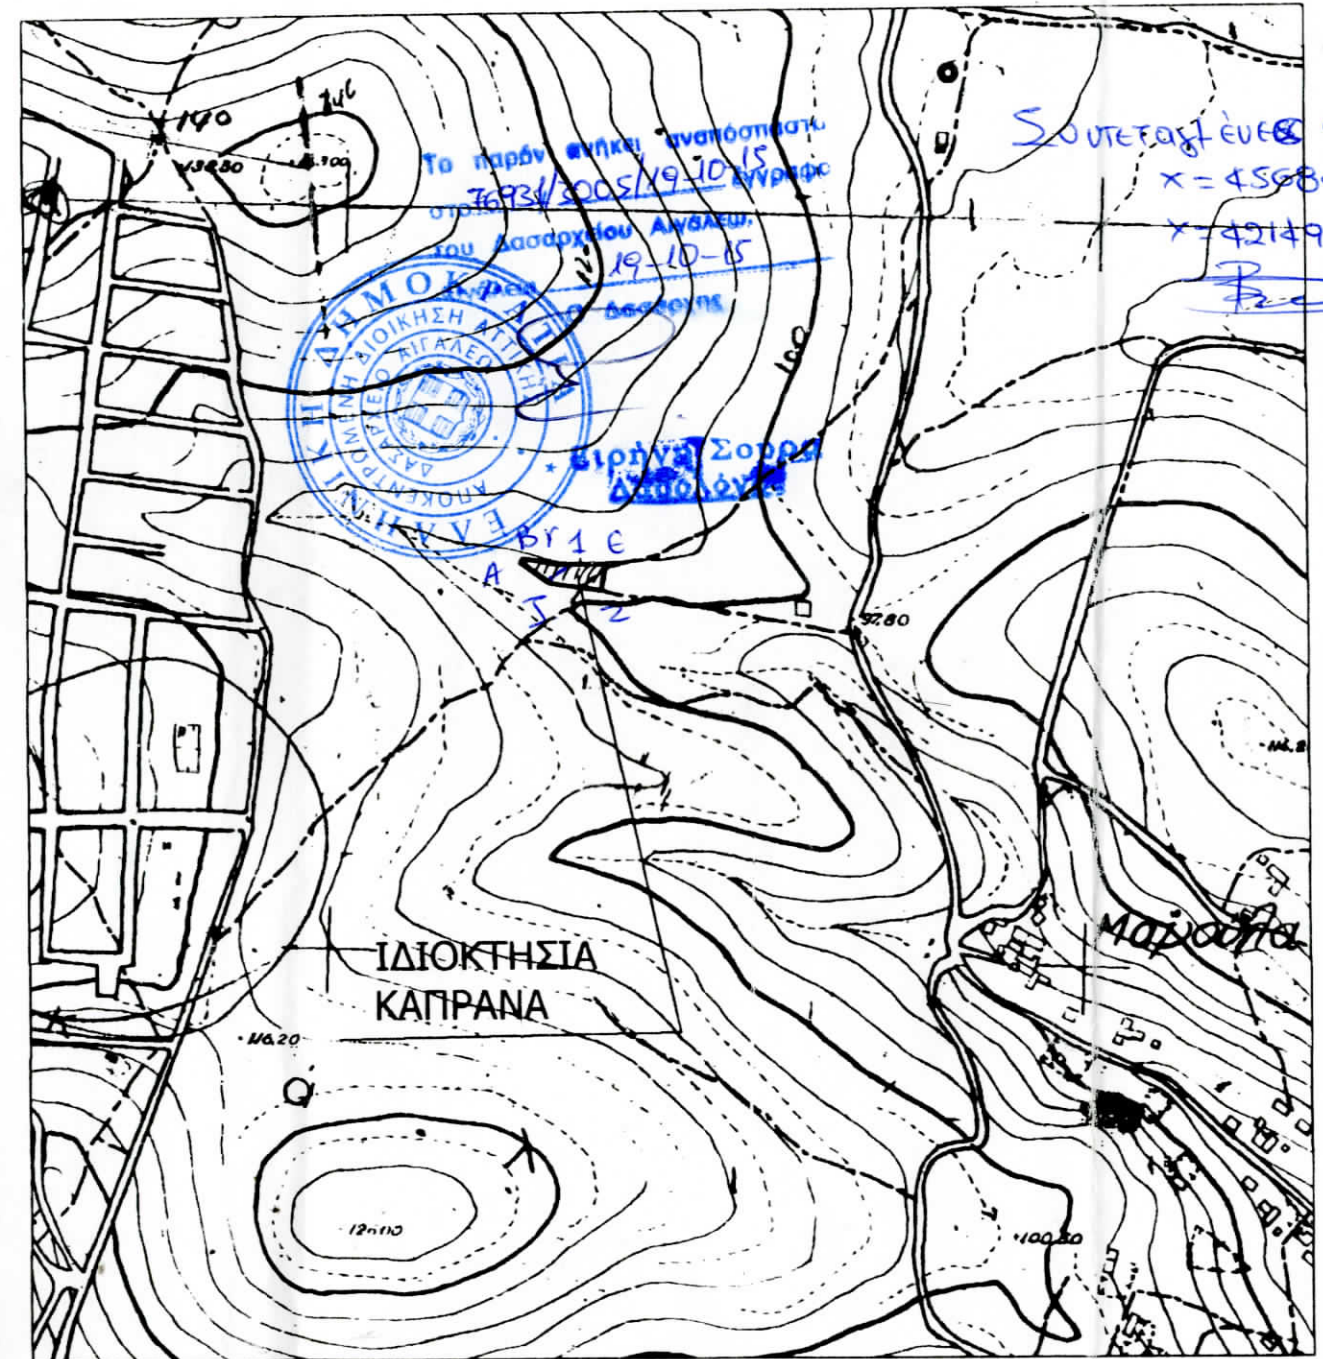 140
136.80
Το παρόν ανήκει αναπόσπαστα
στο 76931/3005/19-10-15 έγγραφο
του Δασαρχείου Αιγάλεω.
19-10-15
Ο Δασάρχης
ΕΛΛΗΝΙΚΗ ΔΗΜΟΚΡΑΤΙΑ
ΑΠΟΚΕΝΤΡΩΜΕΝΗ ΔΙΟΙΚΗΣΗ ΑΤΤΙΚΗΣ
ΔΑΣΑΡΧΕΙΟ ΑΙΓΑΛΕΩ
Ειρήνη Σουρρα
Δασολόγος
Συντεταγμένες
x = 4508
x = 42149
100
Β Γ 1 Ε
Α
Ζ
97.80
116.2
ΙΔΙΟΚΤΗΣΙΑ
ΚΑΠΡΑΝΑ
116.20
100.80